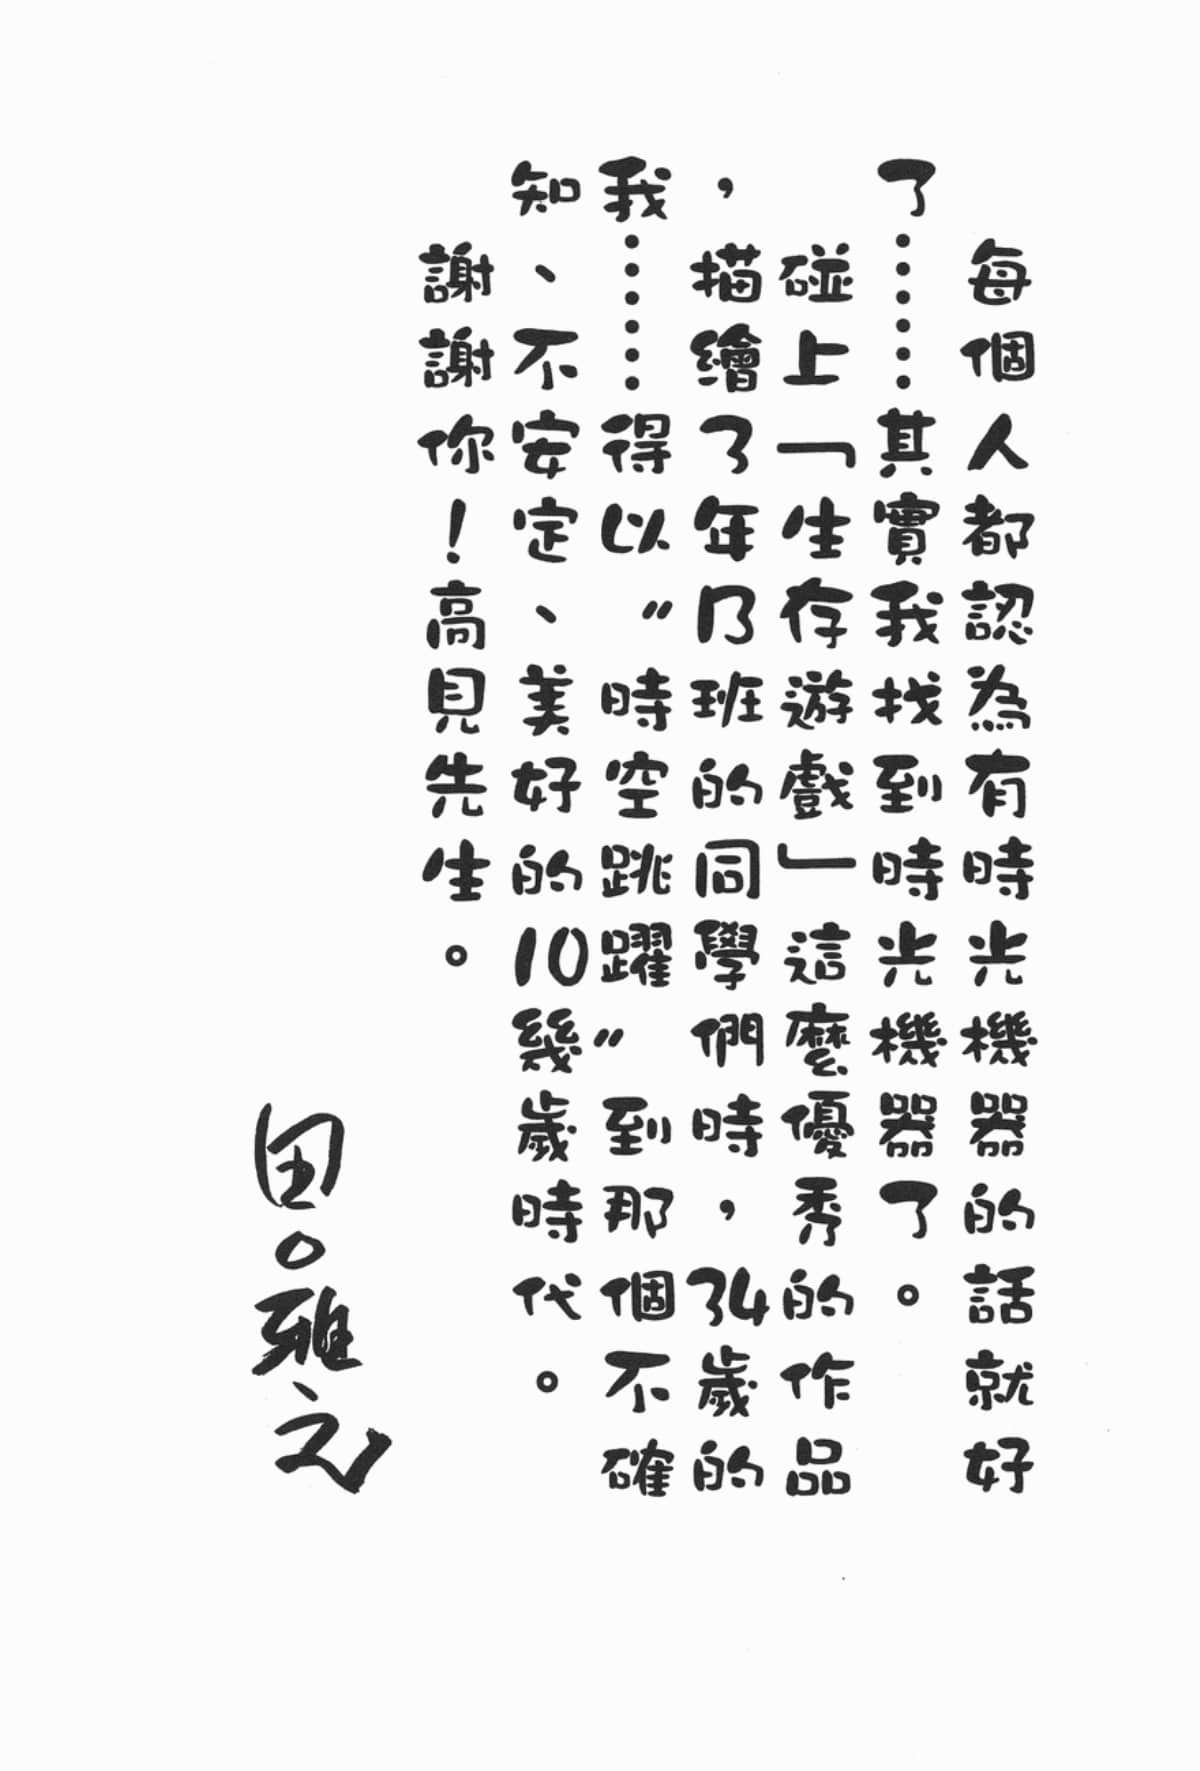 每個人都認為有時光機器的話就好
了……其實我找到時光機器了。
碰上「生存遊戲」這麼優秀的作品
，描繪了3年乃班的同學們時，34歲的
我……得以〝時空跳躍〞到那個不確
知、不安定、美好的10幾歲時代。
謝謝你！高見先生。
田口雅之